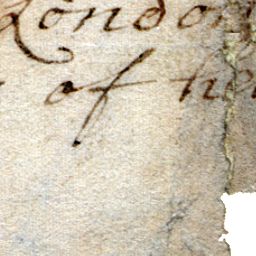 London
of he